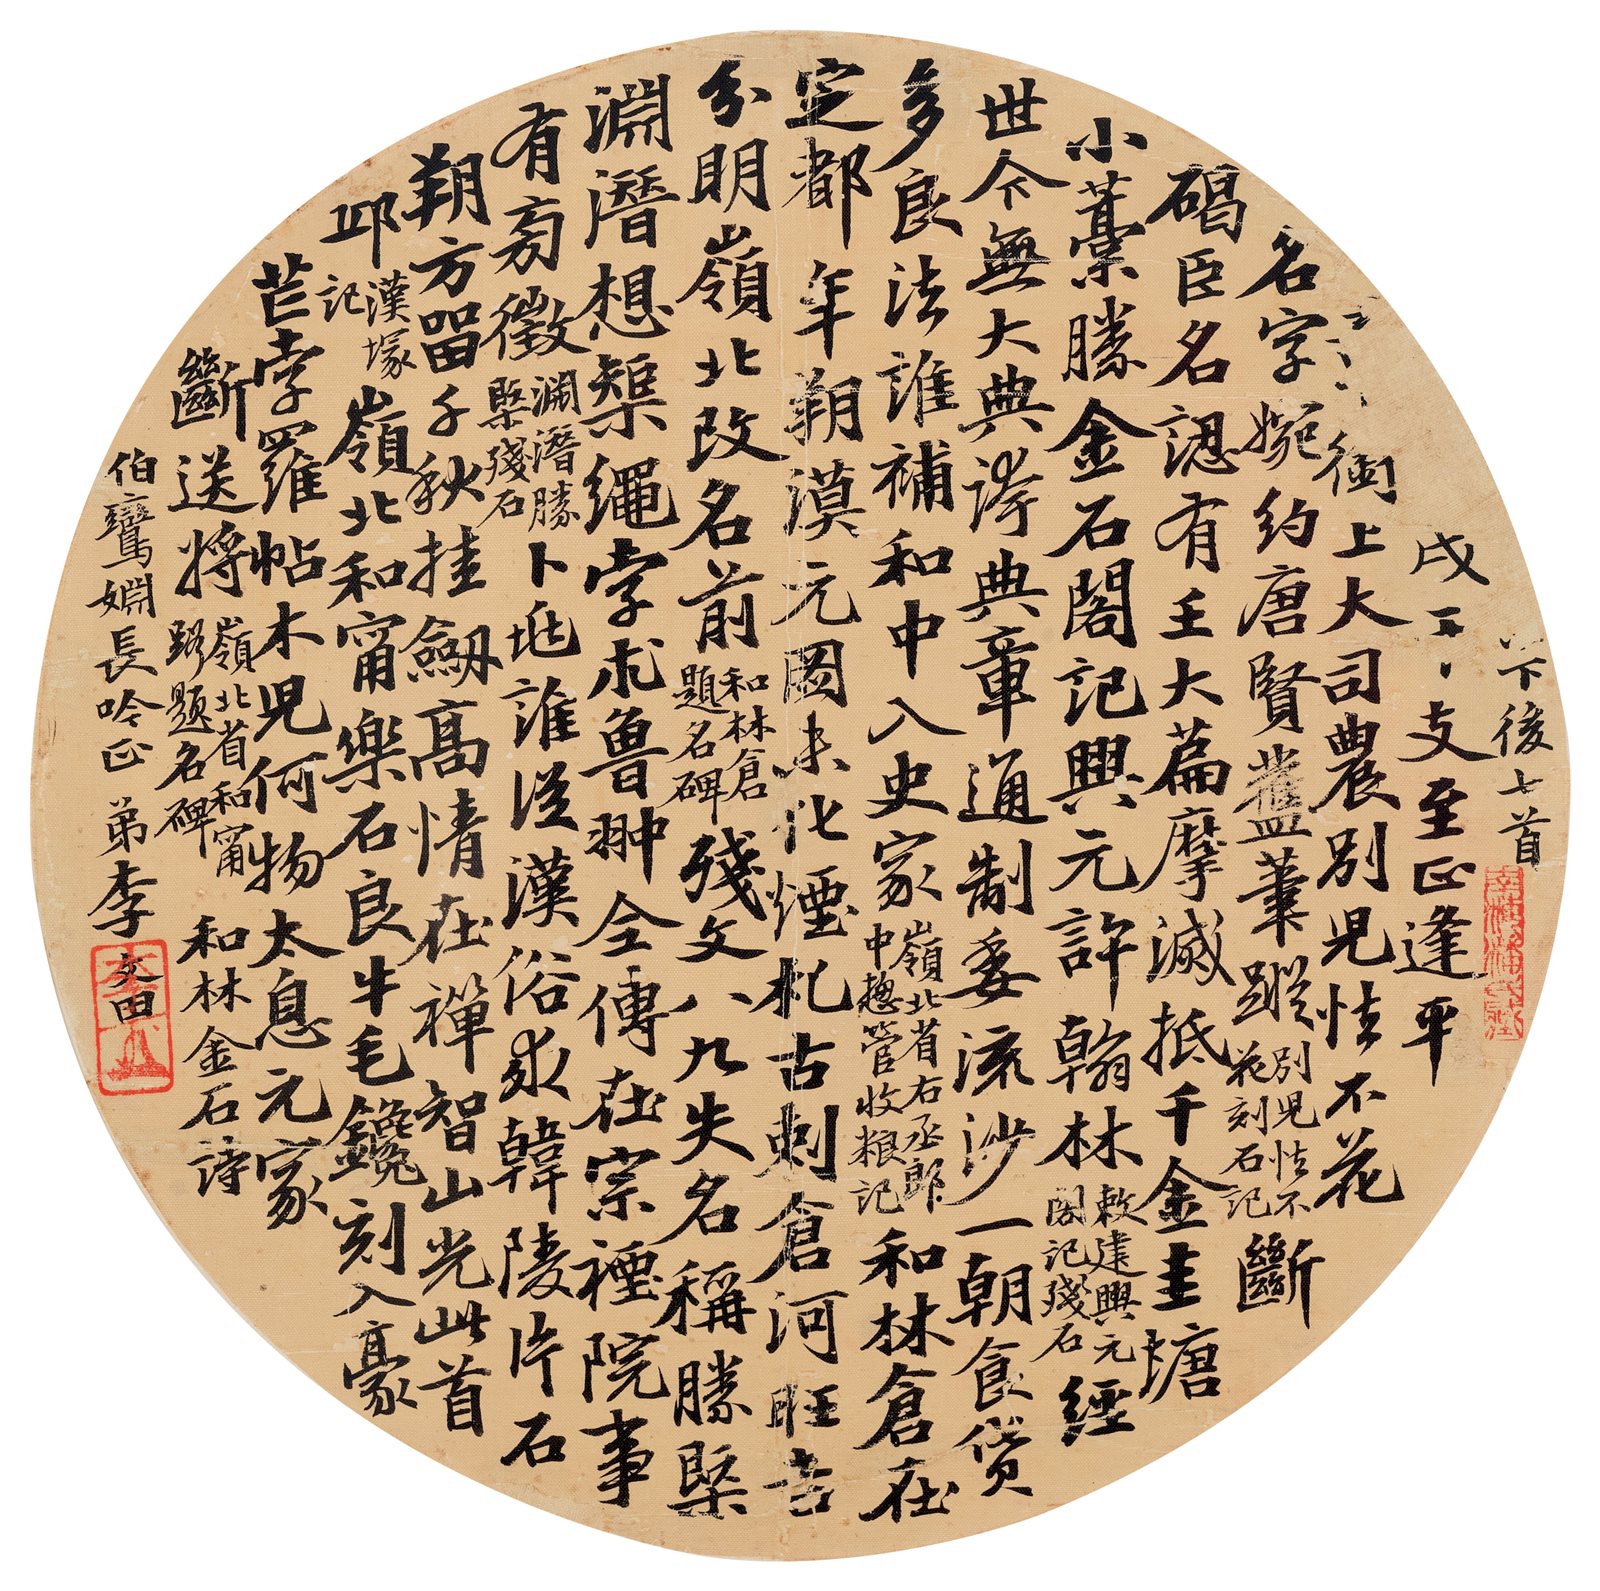 後七首
支至正逢平
銜上大司農別兒怯不花
名字婉約唐賢蓋葦蹤別兒怯不花刻石記斷
碣臣名認有壬大篇摩滅抵千金圭塘
小藁勝金石閣記興元許翰林敕建興元閣記殘石經
世今無大典誇典章通制委流沙一朝食貨
多良法誰補和中入史家嶺北省右丞郎中總管收粮記和林倉在
定都年朔漠元圖未化煙札古剌倉河旺吉
分明嶺北改名前和林倉題名碑殘文八九失名稱勝槩
淵潛想槼繩孛朮魯翀全傳在崇禋院事
有芻徵淵潛勝槩殘石卜兆誰從漢俗求韓陵片石
朔方留千秋挂劒高情在禪智山光此首
邱漢塚記嶺北和甯樂石良牛毛鑱刻入豪
芒孛羅帖木兒何物太息元家
斷送將嶺北省和甯路題名碑和林金石詩
伯鸞嫻長吟正弟李文田